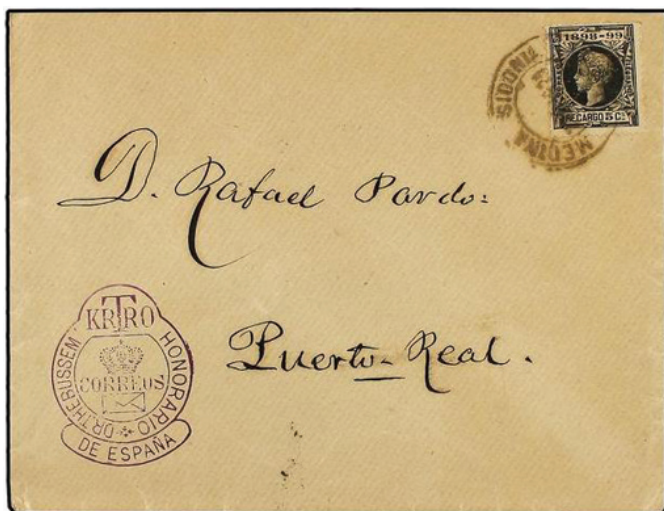 1898-99
RECARGO 5 Cs
MEDINA SIDONIA
D. Rafael Pardo:
Puerto-Real.
T
KRTRO
CORREOS
DR. THEBUSSEM
HONORARIO
DE ESPAÑA